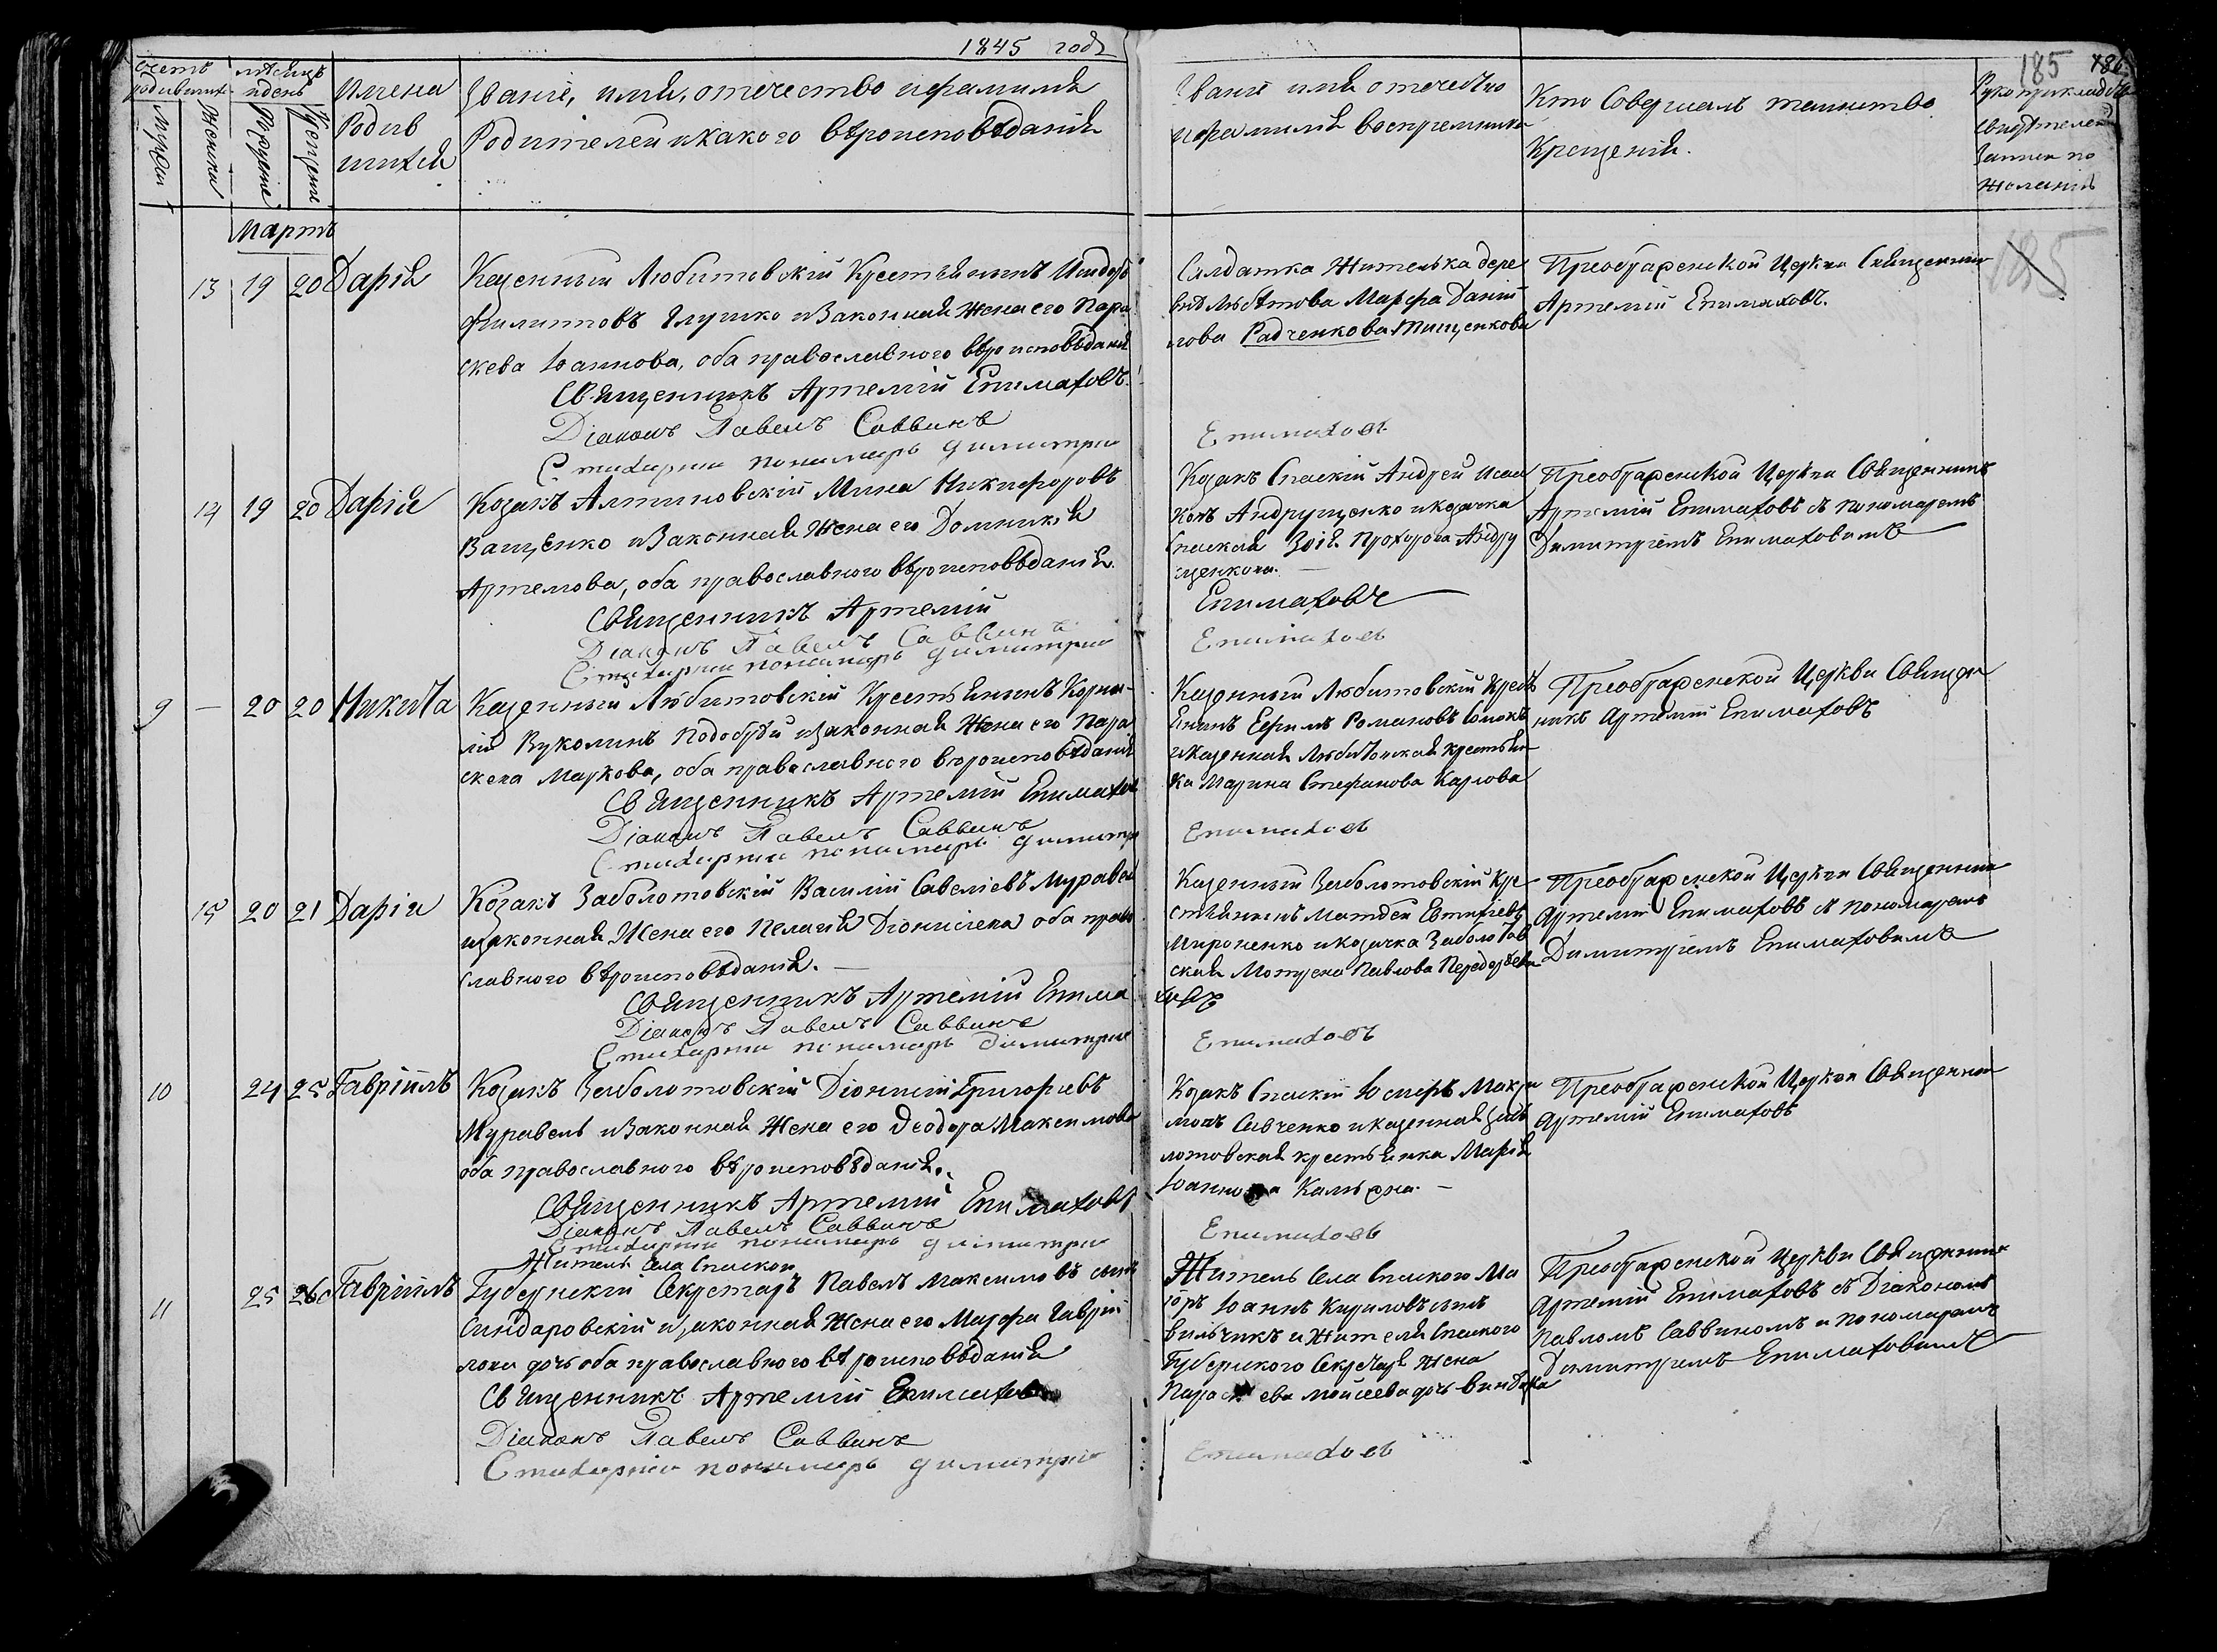 1845 годъ
185 186
счетъ родившихъ
мѣсяцъ и день
Имена Родившихся
Званіе, имя, отечество и фамилія
Родителей и какого вѣроисповѣданія
Званіе имя отечество
и фамилія воспремника
Кто Совершалъ таинство
Крещенія.
Рукоприкладство
свидѣтелей
Записи по
желанію
Марть
13 19 20 Дарія
Казенный Любитовскій Крестьянинъ Исидоръ
Филиповъ Глушко и Законная Жена его Пара
скева Іоаннова, оба православного вѣроисповѣданія
Священникъ Артемій Епимаховъ.
Діаконъ Павелъ Саввинъ
Стихарный пономарь Димитрій
Салдатка Жителька дере
вни Любѣтова Марфа Даніи
лова Радченкова Тищенкова
Епимаховъ
Преображенской Церкви Священникъ
Артемій Епимаховъ.
185
14 19 20 Дарія
Козакъ Алтиновскій Мина Никифоровъ
Ващенко и Законная Жена его Домникія
Артемова, оба православного вѣроисповѣданія.
Священникъ Артемій
Діаконъ Павелъ Саввинъ
Стихарный пономарь Димитрій
Козакъ Спаскій Андрей Исаа
ковъ Андрущенко и козачка
Спаская Зоія Прохорова Андру
щенкова.
Епимаховъ
Епимаховъ
Преображенской Церкви Священникъ
Артемій Епимаховъ съ пономаремъ
Димитріемъ Епимаховымъ
9 — 20 20 Никита
Казенный Любитовскій Крестьянинъ Корни-
лій Вуколинъ Подобѣдъ и законная Жена его Пара
скева Маркова, оба православного вѣроисповѣданія
Священникъ Артемій Епимахов
Діаконъ Павелъ Саввинъ
Стихарный пономарь Димитр
Казенный Любитовскій Крест
янинъ Ефимъ Романовъ
и Казенная Любитовская крестьян
ка Марина Стефанова Карпова
Епимаховъ
Преображенской Церкви Священ
никъ Артемій Епимаховъ
15 20 21 Дарія
Козакъ Заболотовскій Василій Савеліевъ Муравел
и законная Жена его Пелагія Діонисіева оба право
славного вѣроисповѣданія.
Священникъ Артемій Епима
Діаконъ Павелъ Саввинъ
Стихарный пономарь Димитрій
Казенный Заболотовскій Кре
стьянинъ Матѳей Евтихіевъ
Мироненко и козачка Заболотов
ская Мотрена Павлова
ховъ
Епимаховъ
Преображенской Церкви Священникъ
Артемій Епимаховъ съ пономаремъ
Димитріемъ Епимаховымъ
10 24 25 Гавріилъ
Козакъ Заболотовскій Діонисій Григоріевъ
Муравель и Законная Жена его Ѳеодора Максимова
оба православного вѣроисповѣданія.
Священникъ Артемій Епимаховъ
Діаконъ Павелъ Саввинъ
Стихарный пономарь Димитрій
Козакъ Спаскій Іосифъ Макси
мовъ Савченко и казенная Забо
лотовская крестьянка Марія
Іоаннова
Епимаховъ
Преображенской Церкви Священник
Артемій Епимаховъ
11 25 26 Гавріилъ
Житель Села Спаского
Губернскій Секретаръ Павелъ Максимовъ сынъ
Синдаровскій и законная Жена его Марфа Гавріи
лова дочь оба православного вѣроисповѣданія
Священникъ Артемій Епимахов
Діаконъ Павелъ Саввинъ
Стихарный пономарь Димитрій
Житель Села Спаского Ма
іоръ Іоаннъ Кириловъ сынъ
Вильчикъ и Жителя Спаского
Губернского Секретаря жена
Параскева Моисеева дочь
Епимаховъ
Преображенской Церкви Священникъ
Артемій Епимаховъ съ Діакономъ
Павломъ Саввиномъ и пономаремъ
Димитріемъ Епимаховымъ